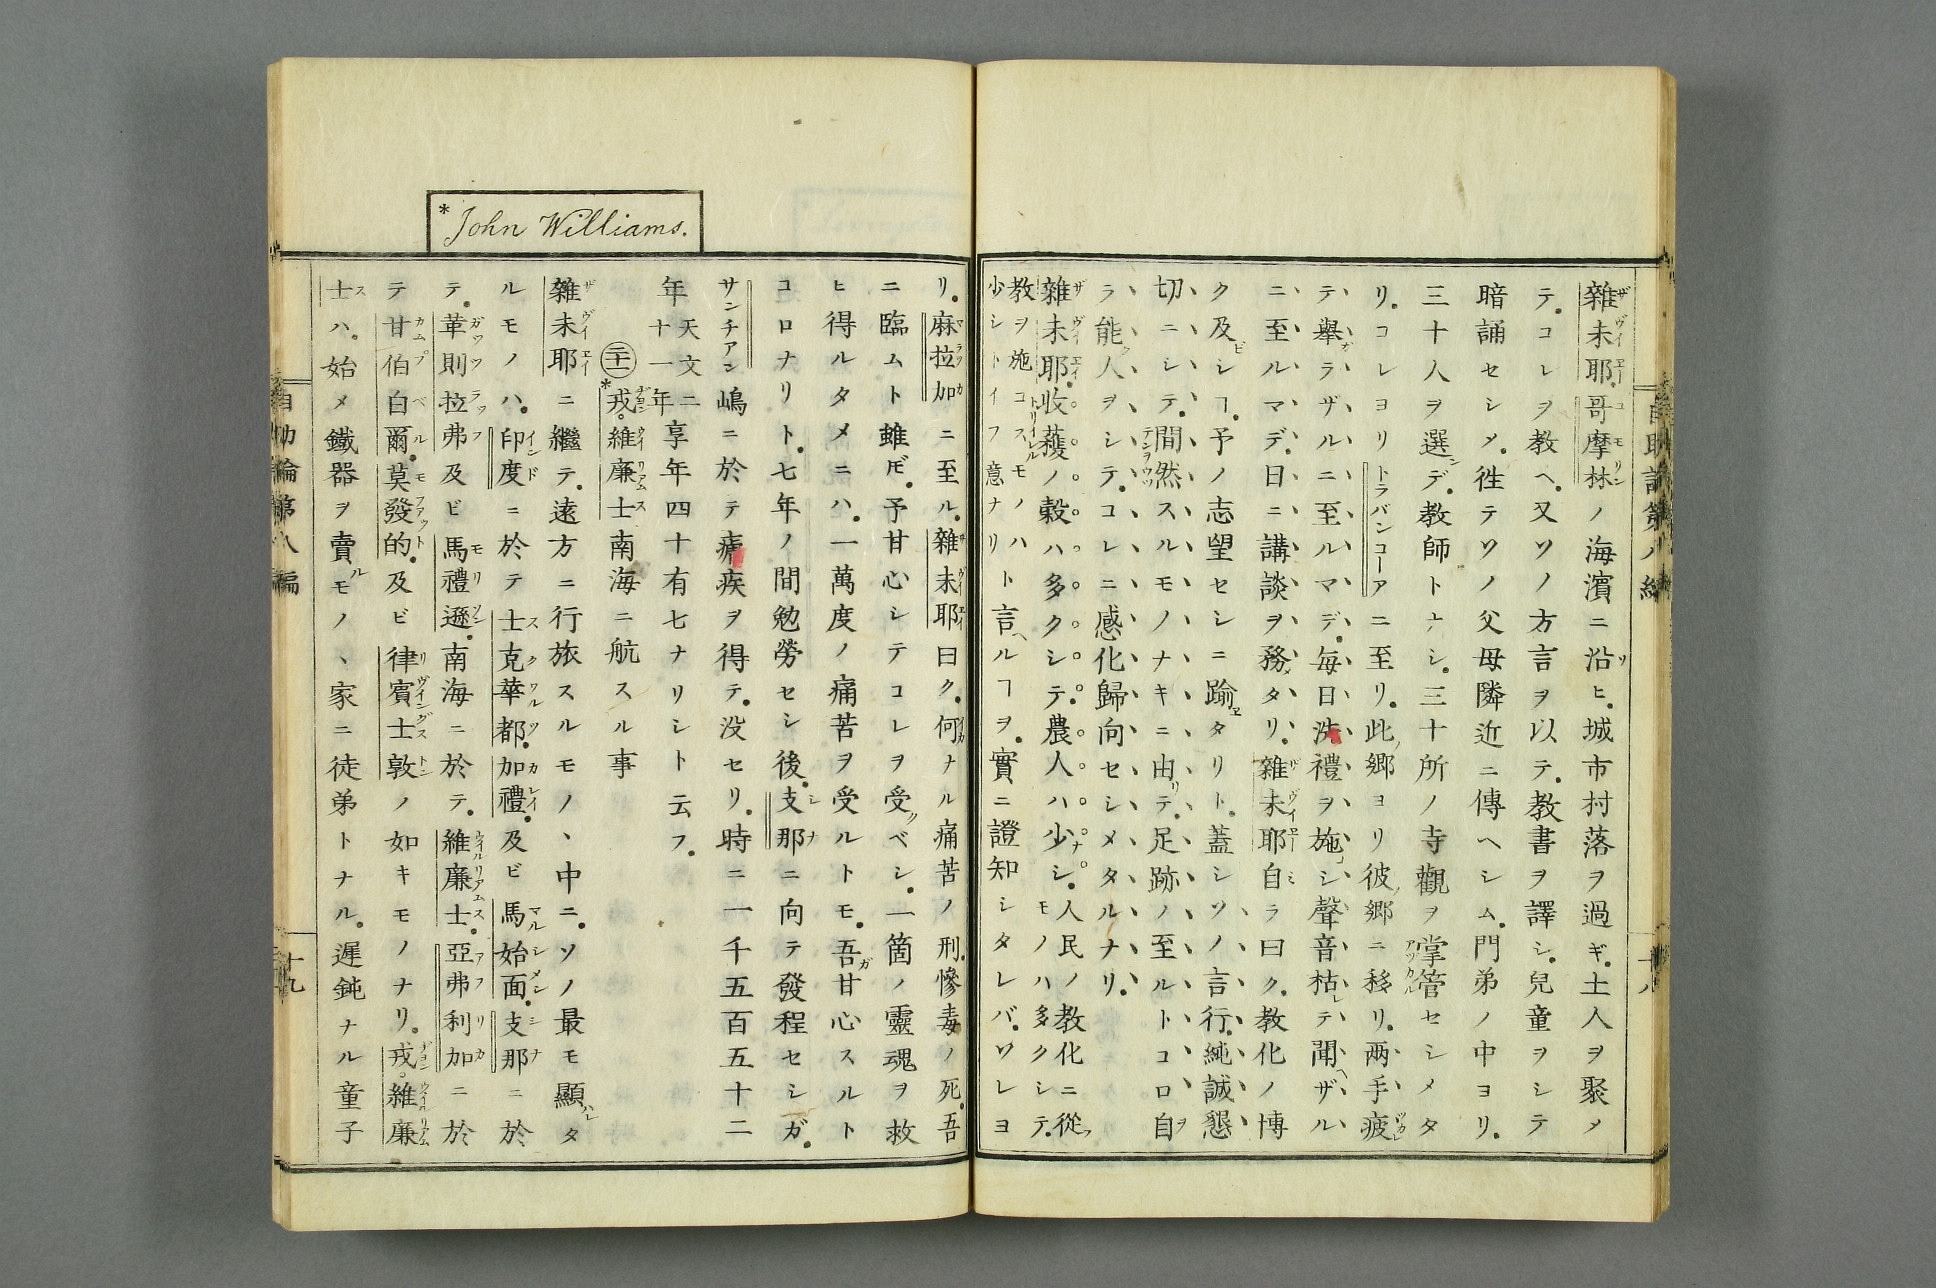 雜未耶哥摩林ノ海濱ニ沿ヒ。城市村落ヲ過ギ。土人ヲ聚メ
テ。コレヲ教ヘ。又ソノ方言ヲ以テ。教書ヲ譯シ。兒童ヲシテ
暗誦セシメ。徃テソノ父母隣近ニ傳ヘシム。門弟ノ中ヨリ。
三十人ヲ選デ。教師トナシ。三十所ノ寺觀ヲ掌管セシメタ
リ。コレヨリトラバンコーアニ至リ。此郷ヨリ彼郷ニ移リ。两手疲
テ擧ラザルニ至ルマデ。毎日洗禮ヲ施シ聲音枯テ聞ヘザル
ニ至ルマデ。日ニ講談ヲ務タリ。雜未耶自ラ曰ク。教化ノ博
ク及ビシヿ。予ノ志望セシニ踰タリト。蓋シソノ言行。純誠懇
切ニシテ。間然スルモノナキニ由テ。足跡ノ至ルトコロ自
ラ能人ヲシテ。コレニ感化歸向セシメタルナリ。
雜未耶。收蓷ノ穀ハ多クシテ。農人ハ少シ。人民ノ教化ニ從フモノハ多クシテ。
教ヲ施コスモノハ少シトイフ意ナリト言ヘルヿヲ。實ニ證知シタレバ。ソレヨ
リ。麻拉加ニ至ル。雜未耶曰ク。何ナル痛苦ノ刑。慘毒ノ死。吾
ニ臨ムト雖𪜈。予甘心シテコレヲ受ベシ。一箇ノ靈魂ヲ救
ヒ得ルタメニハ。一萬度ノ痛苦ヲ受ルトモ。吾甘心スルト
コロナリト。七年ノ間勉勞セシ後。支那ニ向テ發程セシガ。
サンチアン嶋ニ於テ瘧疾ヲ得テ。没セリ。時ニ一千五百五十二
年天文二十一年享年四十有七ナリシト云フ。
㊁十 *戎。維廉士南海ニ航スル事
雜未耶ニ繼テ。遠方ニ行旅スルモノヽ中ニ。ソノ最モ顯ハレタ
ルモノハ。印度ニ於テ士克華都。加禮。及ビ馬始面。支那ニ於
テ。革則拉弗及ビ馬禮遜。南海ニ於テ。維廉士。亞弗利加ニ於
テ甘伯白爾。莫發的。及ビ律賓士敦ノ如キモノナリ。戎。維廉
士ハ。始メ鐵器ヲ賣ルモノヽ家ニ徒弟トナル。遲鈍ナル童子
*John Williams.
自助論第八編
十九